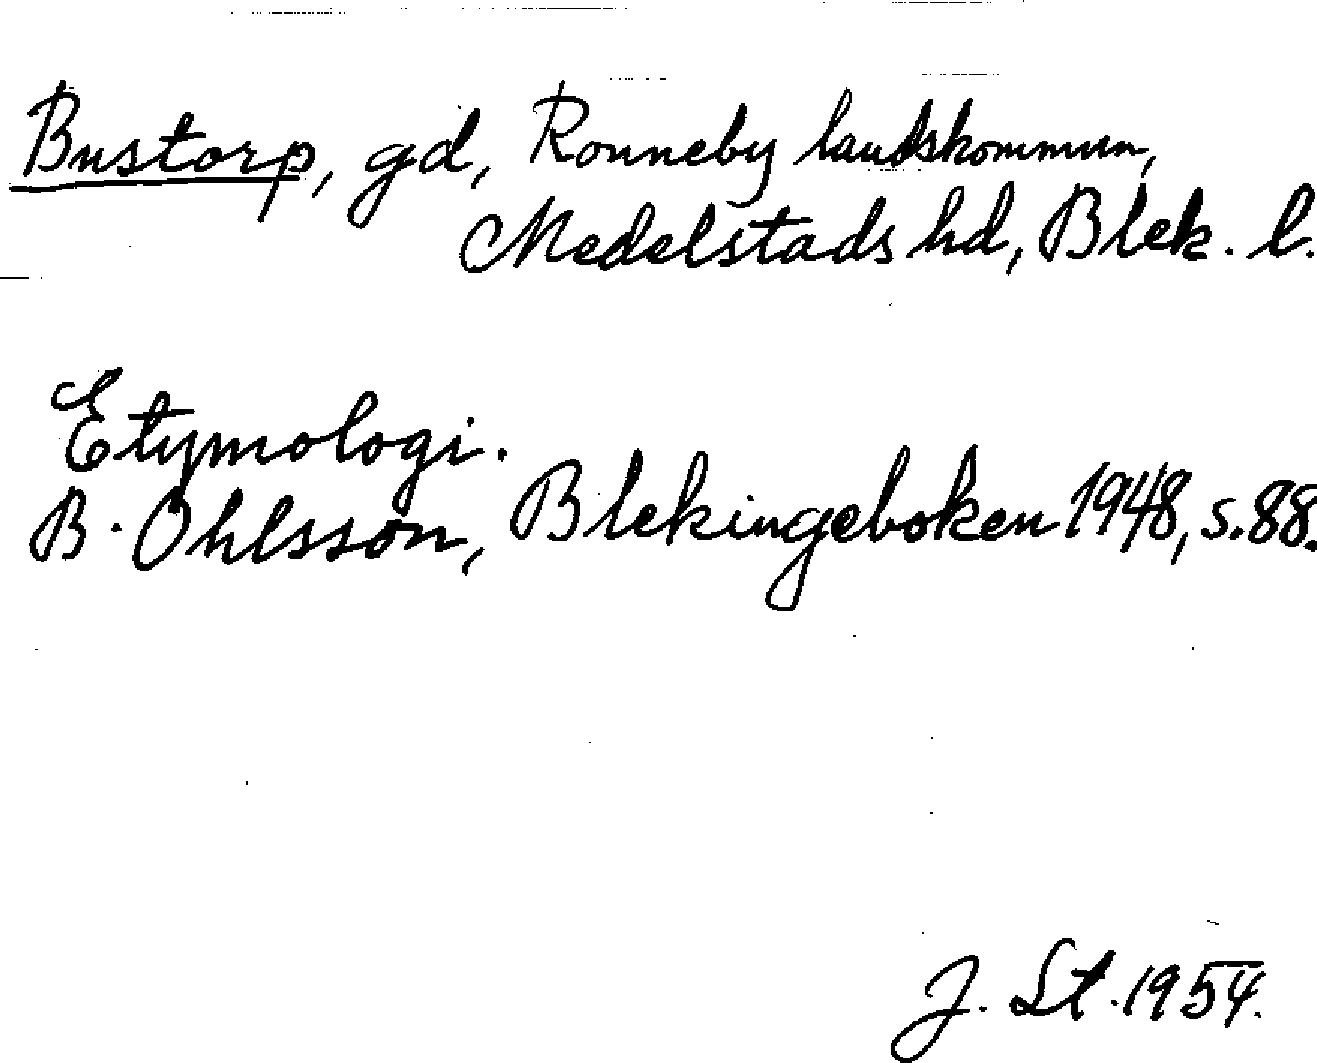 Bustorp, gd, Ronneby landskommun,
Medelstads hd, Blek. l.
Etymologi.
B. Ohlsson, Blekingeboken 1948, s. 88.
J. St. 1954.